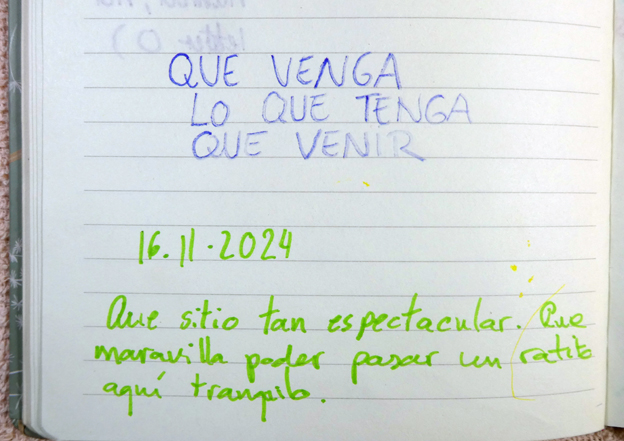 QUE VENGA
LO QUE TENGA
QUE VENIR
16.11.2024
Que sitio tan espectacular. Que
maravilla poder pasar un ratito
aquí tranquilo.